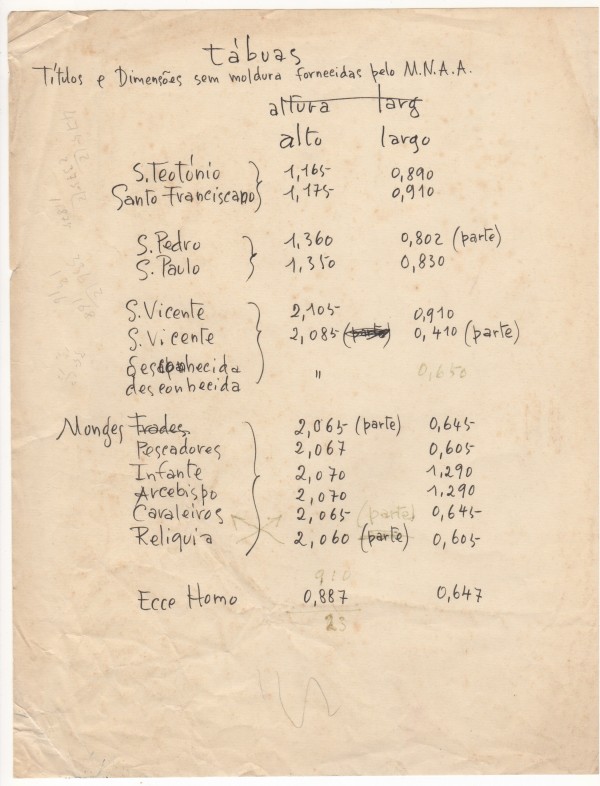 tábuas
Títulos e Dimensões sem moldura fornecidas pelo M.N.A.A.
altura larg
alto largo
S. Teotónio 1,165 0,890
Santo Franciscano 1,175 0,910
S. Pedro 1,360 0,802 (parte)
S. Paulo 1,350 0,830
S. Vicente 2,105 0,910
S. Vicente 2,085 (parte) 0,410 (parte)
desconhecida
desconhecida " 0,650
Monges Frades 2,065 (parte) 0,645
Pescadores 2,067 0,605
Infante 2,070 1,290
Arcebispo 2,070 1,290
Cavaleiros 2,065 (parte) 0,645
Reliquia 2,060 (parte) 0,605
910
Ecce Homo 0,887 0,647
23